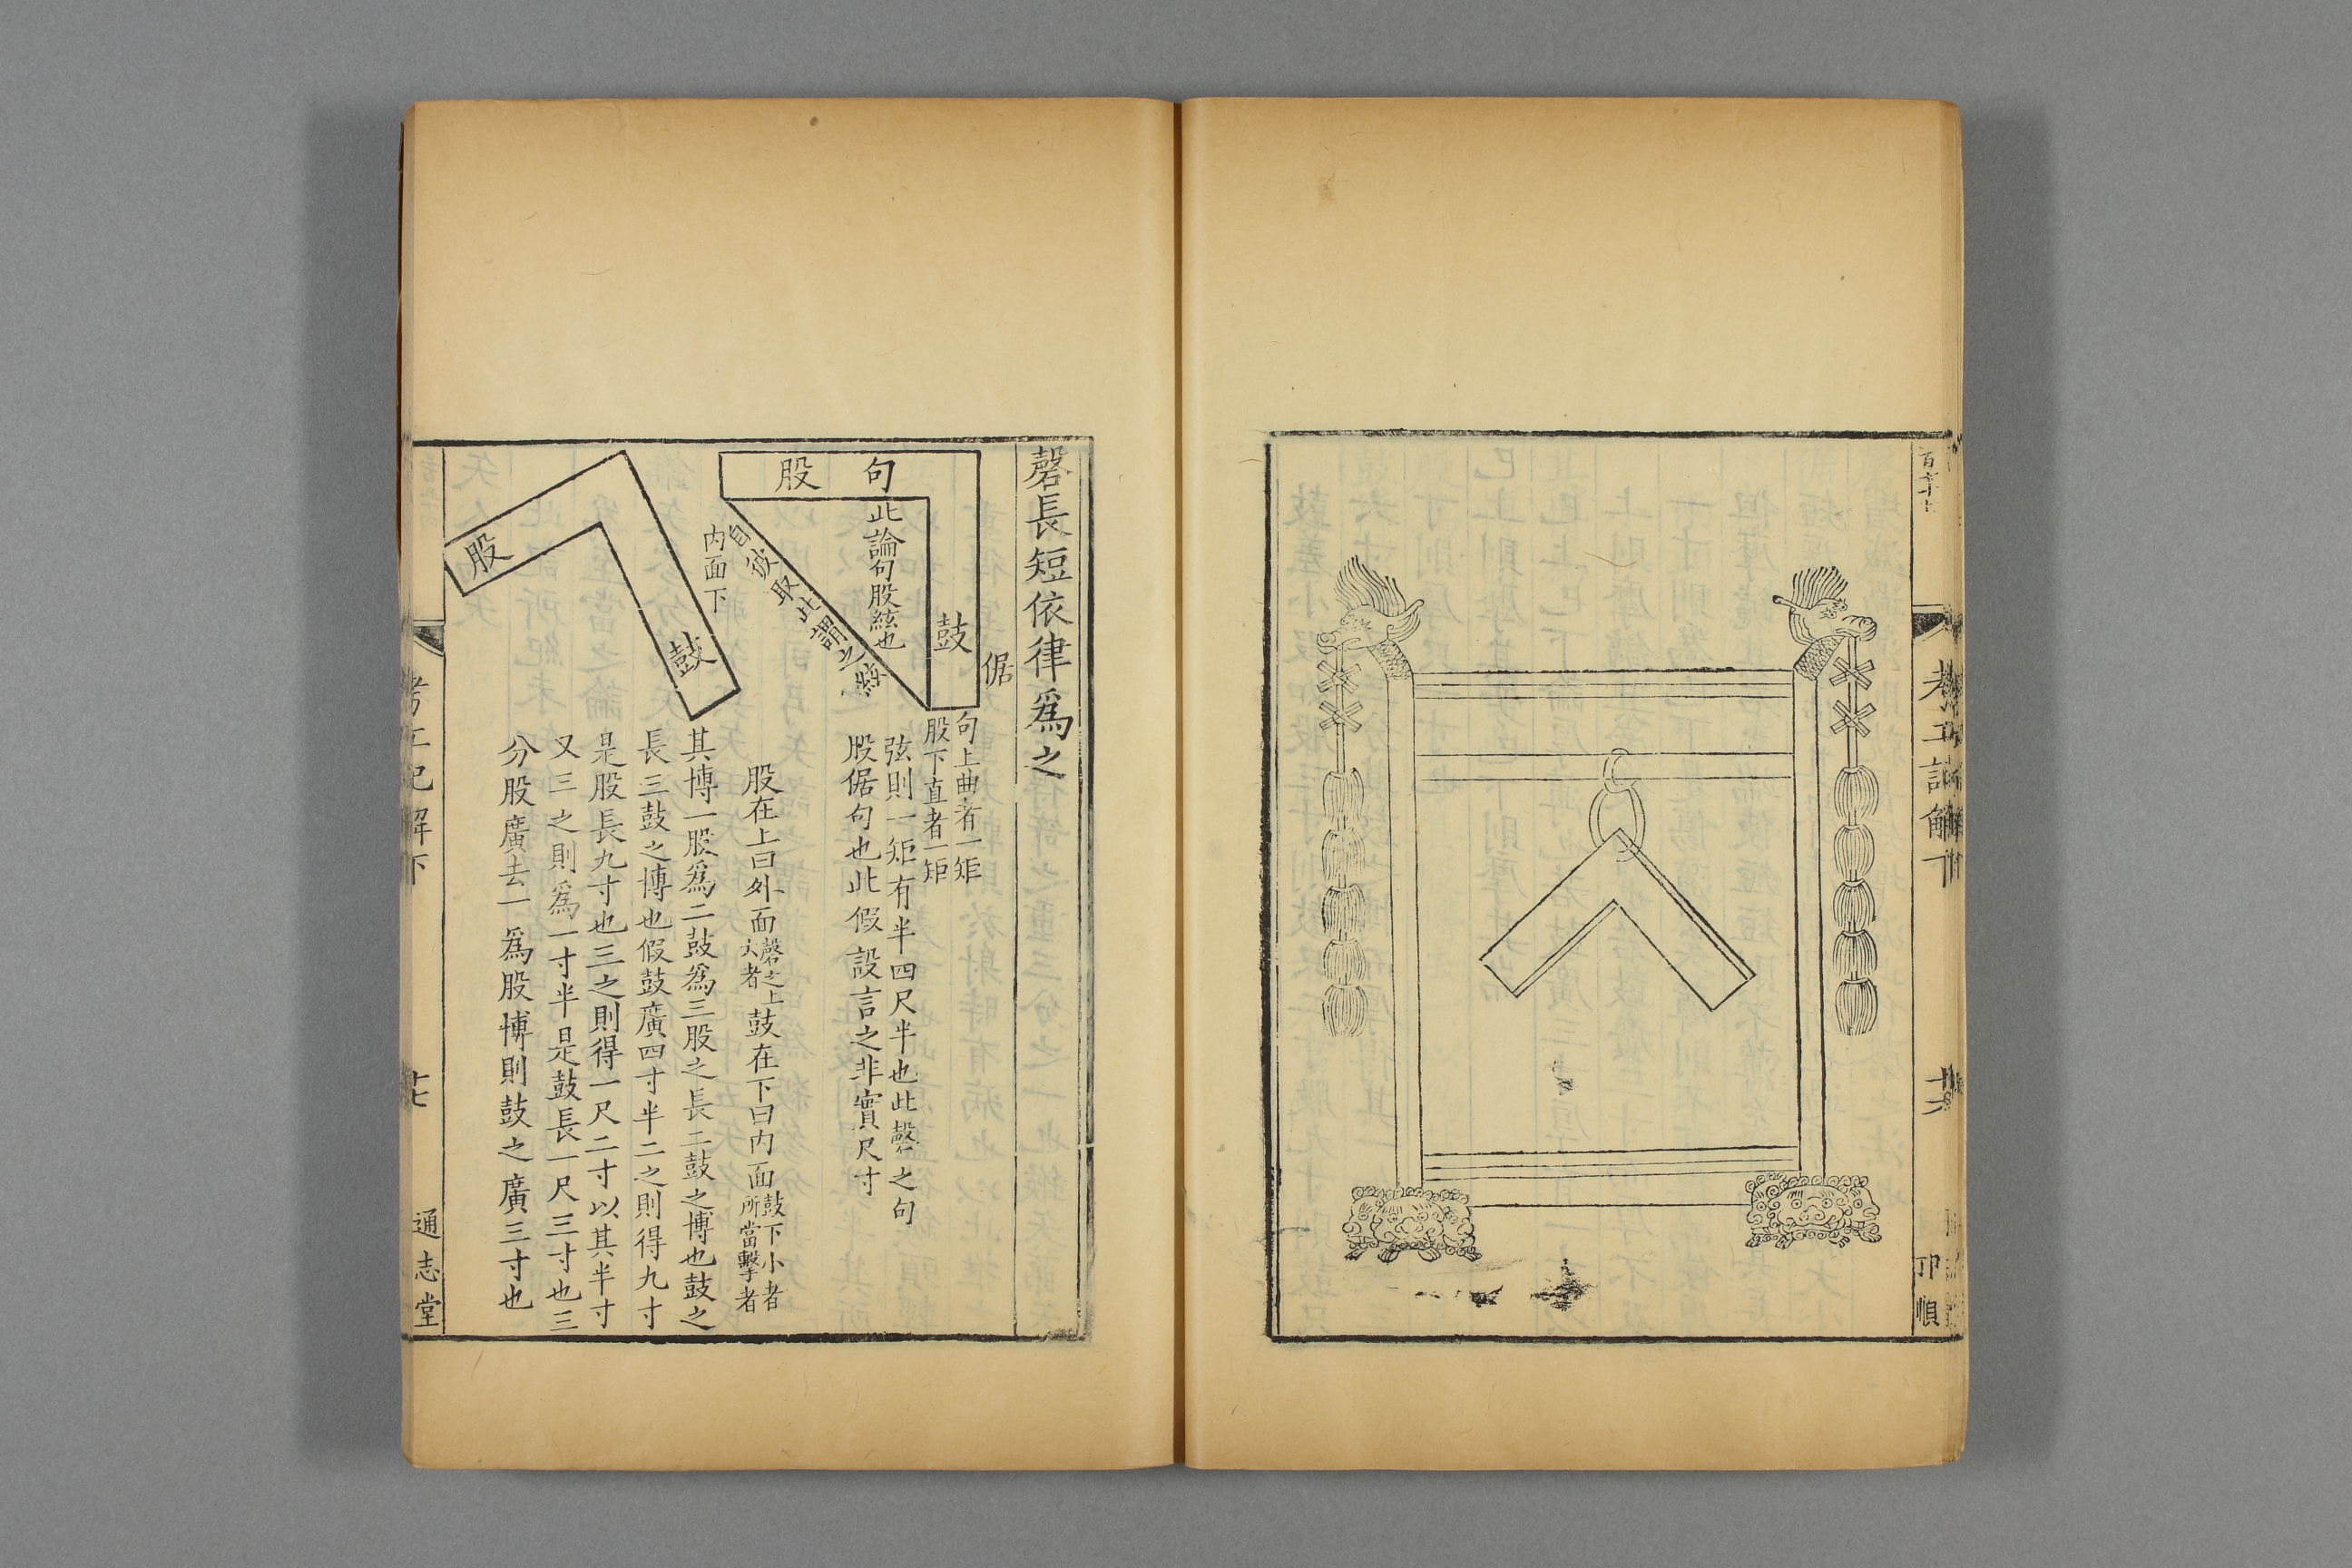 考工記解下
磬長短依律爲之
句
股
鼓
倨
此論句股絃也
自彼取此謂之絃
内面下
句上曲者一矩
股下直者一矩
弦則一矩有半四尺半也此磬之句
股倨句也此假設言之非實尺寸
股在上曰外面磬之上大者鼓在下曰内面鼓下小者所當擊者
股
鼓
其博一股爲二鼓爲三股之長二鼓之博也鼓之
長三鼓之博也假鼓廣四寸半二之則得九寸
是股長九寸也三之則得一尺二寸以其半寸
又三之則爲一寸半是鼓長一尺三寸也三
分股廣去一爲股博則鼓之廣三寸也
考工記解下
十七
通志堂